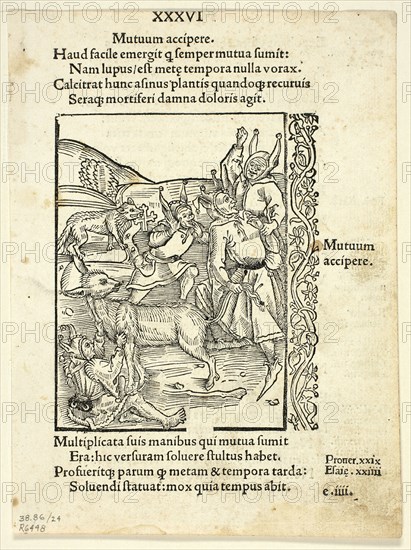 XXXVI
Mutuum accipere.
Haud facile emergit q̃ semper mutua sumit:
Nam lupus/est metę tempora nulla vorax.
Calcitrat hunc asinus plantis quandoq; recuruis
Seraq; mortiferi damna doloris agit.
Mutuum
accipere.
Multiplicata suis manibus qui mutua sumit
Era: hic versuram soluere stultus habet.
Profueritq; parum q̃ metam & tempora tarda:
Soluendi statuat: mox quia tempus abit.
Prouer. xxix
Esaię. xxiiii
e.iiii.
38.86/24
R6448
PHOTO 12